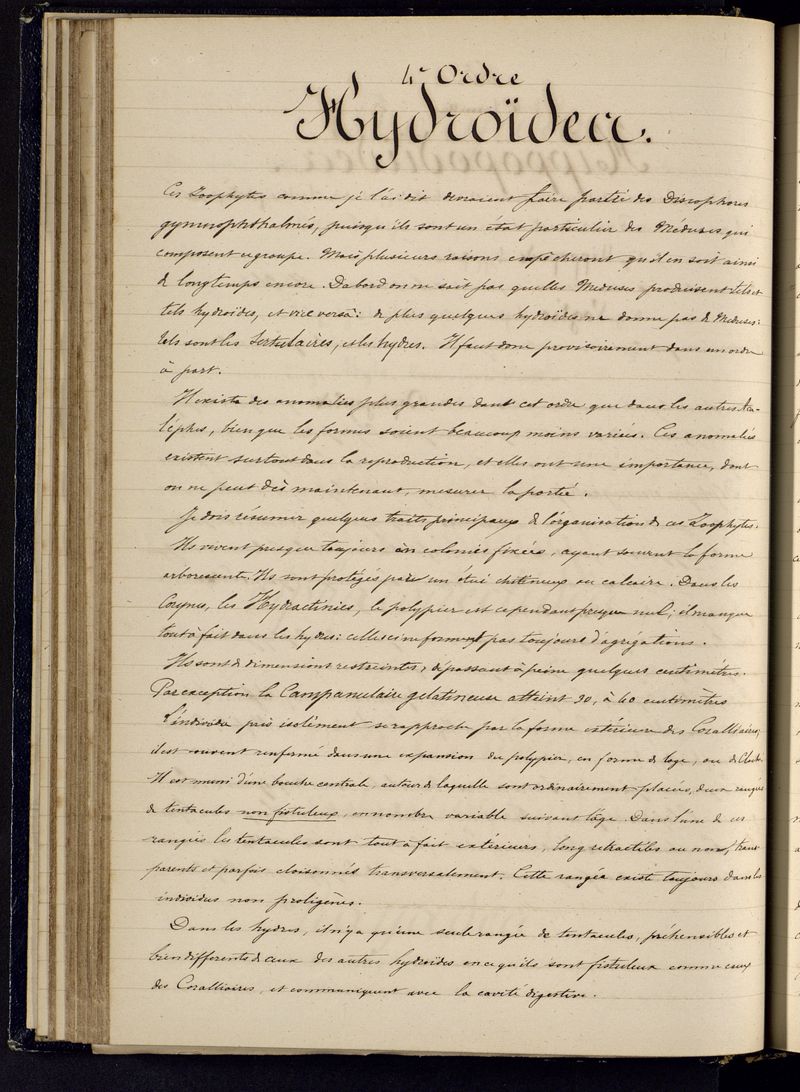 4e Ordre
Hydroïdea.
Ces Zoophytes comme je l'ai dit devraient faire partie des Discophores
gymnophthalmés, puisqu'ils sont un état particulier des Méduses qui
composent ce groupe. Mais plusieurs raisons empêcheront qu'il en soit ainsi
de longtemps encore. Dabord on ne sait pas quelles Meduses produisent tels et
tels hydroïdes, et vice versà: de plus quelques hydroïdes ne donne pas de Meduses:
tels sont les Sertulaires, et les hydres. Il faut donc provisoirement dans un ordre
à part.
Il existe des anomalies plus grandes dans cet ordre que dans les autres Aca-
lèphes, bien que les formes soient beaucoup moins variées. Ces anomalies
existent surtout dans la reproduction, et elles ont une importance, dont
on ne peut dès maintenant, mesurer la portée.
Je dois résumer quelques traits principaux de l'organisation de ces Zoophytes.
Ils vivent presque toujours en colonies fixées, ayant souvent la forme
arborescente. Ils sont protégés par un étui chitineux ou calcaire. Dans les
Corynes, les Hydractinies, le polypier est cependant presque nul; il manque
tout à fait dans les hydres: celles ci ne forment pas toujours d'agrégations.
Ils sont de dimensions restreintes, dépassant à peine quelques centimètres.
Par exception la Campanulaire gelatineuse atteint 30, à 40 centimètres
L'individu pris isolément se rapproche par la forme extérieure des Coralliaires;
il est souvent renfermé dans une expansion du polypier, en forme de loge, ou de Cloche.
Il est muni d'une bouche centrale, autour de laquelle sont ordinairement placés, deux rangées
de tentacules non fistuleux, en nombre variable suivant l'âge. Dans l'une de ces
rangées les tentacules sont tout à fait extérieurs, long retractiles ou non, trans
parents et parfois cloisonnés transversalement. Cette rangée existe toujours dans les
individus non proligènes.
Dans les hydres, il n'y a qu'une seule rangée de tentacules, préhensibles et
bien differents de ceux des autres hydroïdes en ce qu'ils sont fistuleux comme ceux
des Coralliaires, et communiquent avec la cavité digestive.